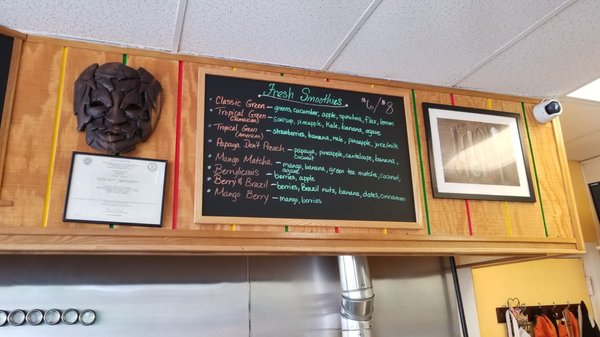 Fresh Smoothies $6/$8
Classic Green - greens, cucumber, apple, spirulina, flax, hemp, lemon
Tropical Green - soursop, pineapple, kale, banana, agave
(Jamaican)
Tropical Green - strawberries, banana, kale, pineapple, juice/milk
(American)
Papaya Don't Preach - papaya, pineapple, cantaloupe, banana,
coconut
Mango Matcha - mango, banana, green tea matcha, coconut,
agave
Berrylicious - berries, apple
Berry & Brazil - berries, Brazil nuts, banana, dates, cinnamon
Mango Berry - mango, berries